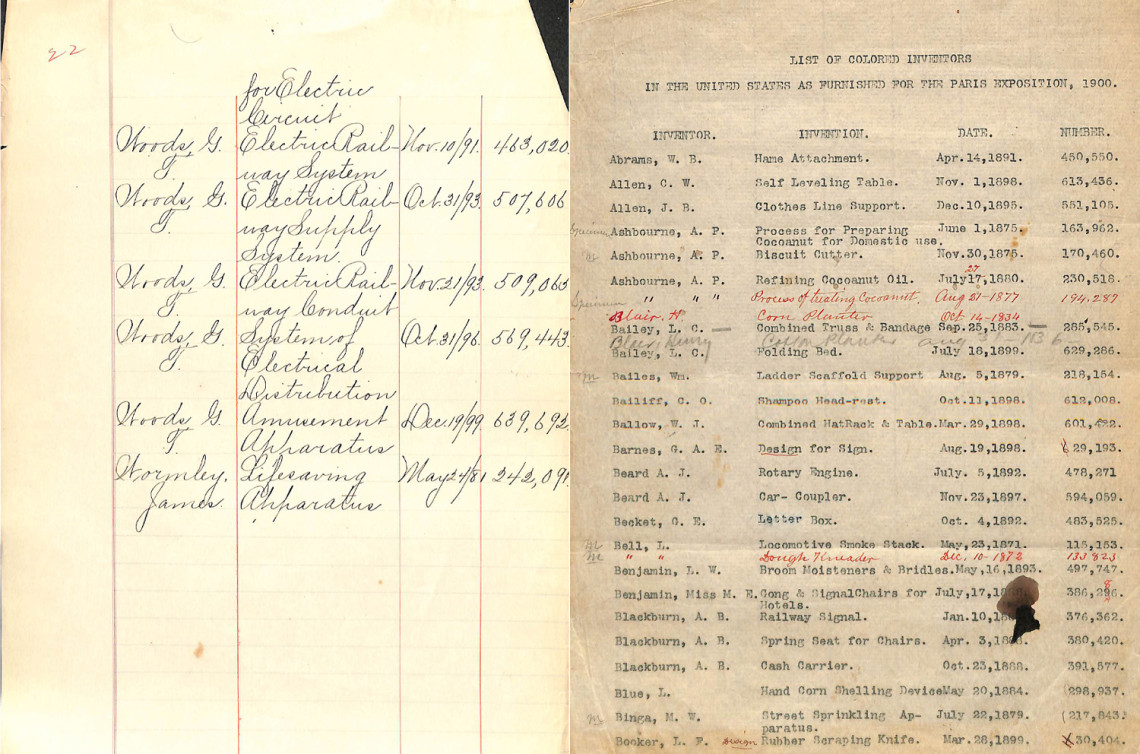 22
for Electric
Circuit
Woods, G. Electric Rail- Nov. 10/91. 463,020
T. way System
Woods, G. Electric Rail- Oct. 31/93. 507,606
T. way Supply
System.
Woods, G. Electric Rail- Nov. 21/93. 509,065
T. way Conduit
Woods, G. System of Oct. 31/96. 569,443
T. Electrical
Distribution
Woods, G. Amusement Dec. 19/99 639,692
T. Apparatus
Wormley, Lifesaving May 24/81 242,091
James. Apparatus
LIST OF COLORED INVENTORS
IN THE UNITED STATES AS FURNISHED FOR THE PARIS EXPOSITION, 1900.
INVENTOR. INVENTION. DATE. NUMBER.
Abrams, W. B. Hame Attachment. Apr.14,1891. 450,550.
Allen, C. W. Self Leveling Table. Nov. 1,1898. 613,436.
Allen, J. B. Clothes Line Support. Dec.10,1895. 551,105.
Specimen Ashbourne, A. P. Process for Preparing June 1,1875. 163,962.
Cocoanut for Domestic use.
m Ashbourne, A. P. Biscuit Cutter. Nov.30,1875. 170,460.
27
Ashbourne, A. P. Refining Cocoanut Oil. July17,1880. 230,518.
Specimen " " " Process of treating Cocoanut. Aug 21-1877 194.287
Blair. H. Corn Planter Oct 14-1834
Bailey, L. C. — Combined Truss & Bandage Sep.25,1883. — 285,545.
Blair, Henry Cotton Planter aug 31-1836
Bailey, L. C. Folding Bed. July 18,1899. 629,286.
m Bailes, Wm. Ladder Scaffold Support Aug. 5,1879. 218,154.
Bailiff, C. O. Shampoo Head-rest. Oct.11,1898. 612,008.
Ballow, W. J. Combined HatRack & Table.Mar.29,1898. 601,422.
Barnes, G. A. E. Design for Sign. Aug.19,1898. 29,193.
Beard A. J. Rotary Engine. July. 5,1892. 478,271
Beard A. J. Car- Coupler. Nov.23,1897. 594,059.
Becket, G. E. Letter Box. Oct. 4,1892. 483,525.
m Bell, L. Locomotive Smoke Stack. May,23,1871. 115,153.
m " " Dough Kneader Dec. 10-1872 133823
Benjamin, L. W. Broom Moisteners & Bridles.May,16,1893. 497,747.
8
Benjamin, Miss M. E.Gong & SignalChairs for July,17,18 386,296.
Hotels.
Blackburn, A. B. Railway Signal. Jan.10,18 376,362.
Blackburn, A. B. Spring Seat for Chairs. Apr. 3,1888. 380,420.
Blackburn, A. B. Cash Carrier. Oct.23,1888. 391,577.
Blue, L. Hand Corn Shelling DeviceMay 20,1884. 298,937.
m Binga, M. W. Street Sprinkling Ap- July 22,1879. (217,843.
paratus.
Booker, L. F. Design Rubber Scraping Knife. Mar.28,1899. 30,404.